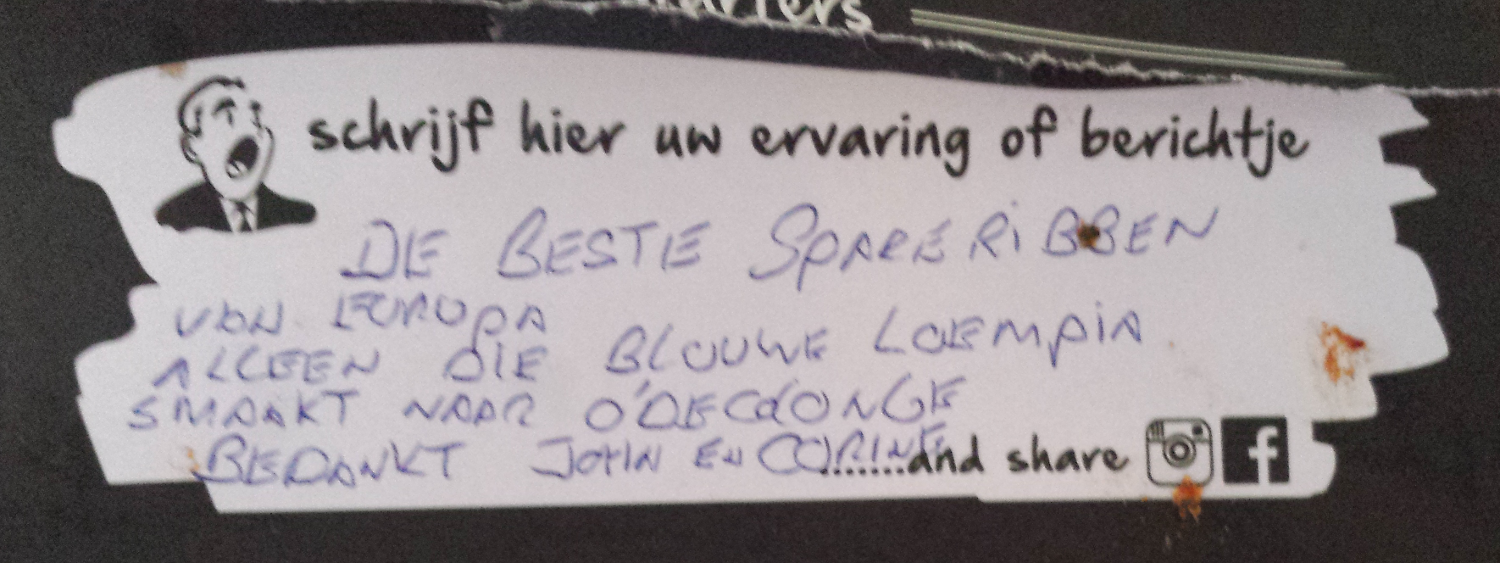 schrijf hier uw ervaring of berichtje
DE BESTE SPARERiBBEN
VAN EUROPA
ALLEEN DIE BLOUWE LOEMPIA
SMAAKT NAAR
BEDANKT JOHN EN CORINE
.......and share